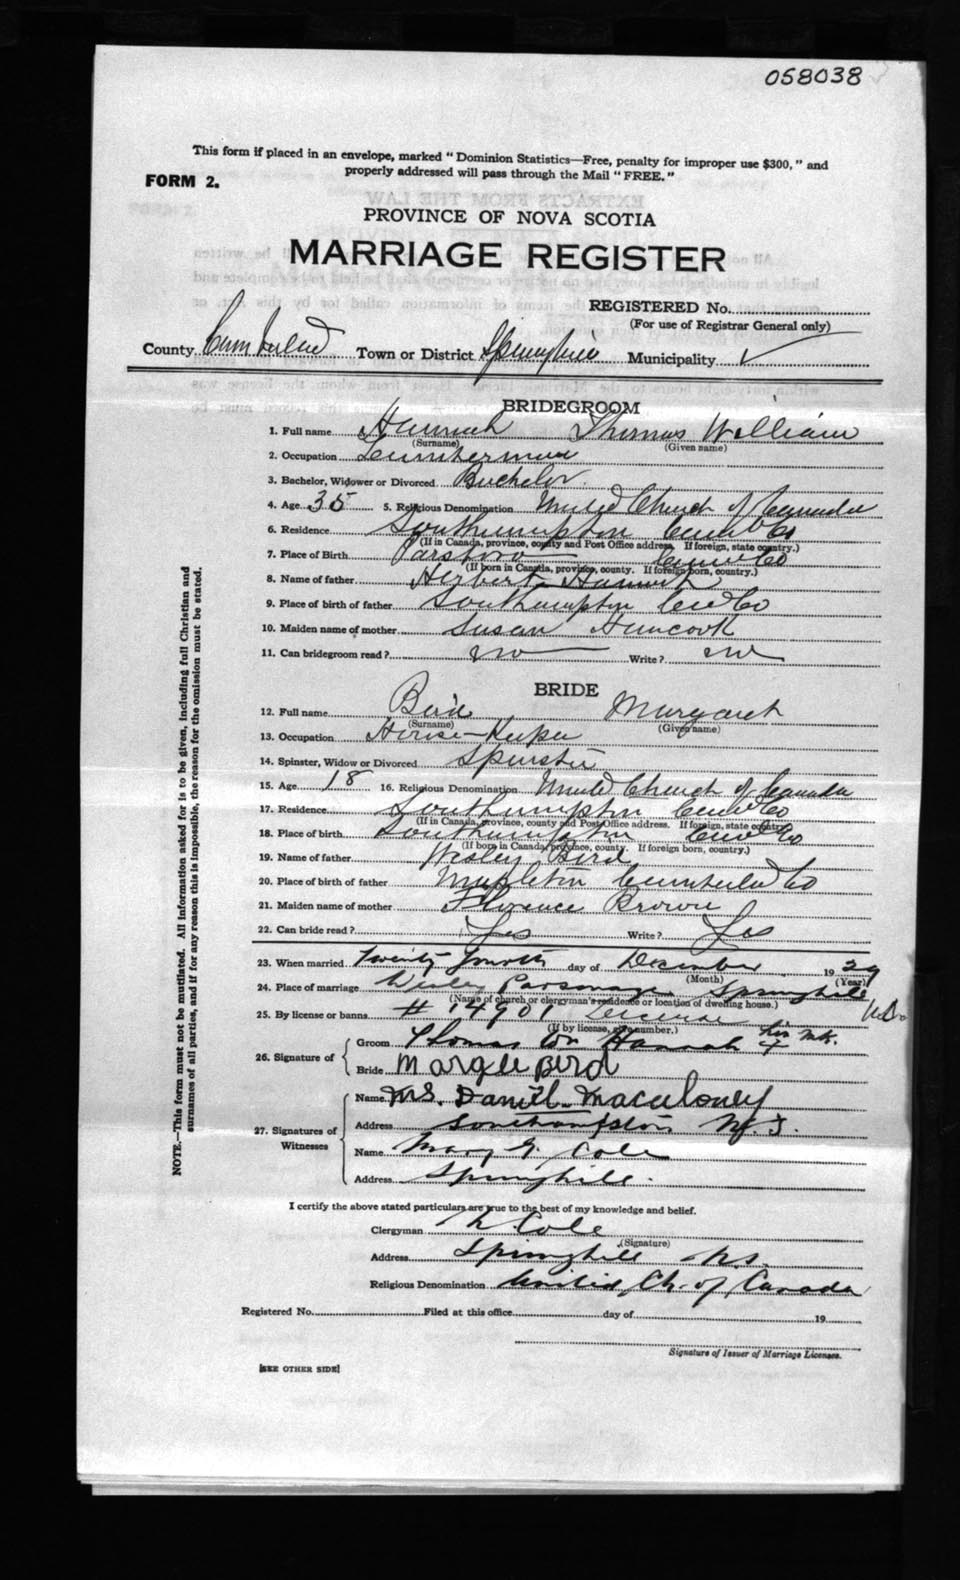 058038
This form if placed in an envelope, marked "Dominion Statistics—Free, penalty for improper use $300," and
properly addressed will pass through the Mail "FREE."
FORM 2.
PROVINCE OF NOVA SCOTIA
MARRIAGE REGISTER
REGISTERED No.
(For use of Registrar General only)
County Cumberland Town or District Springhill Municipality ✓
BRIDEGROOM
1. Full name Hannah Thomas William
(Surname) (Given name)
2. Occupation Lumberman
3. Bachelor, Widower or Divorced Bachelor.
4. Age 35 5. Religious Denomination United Church of Canada
6. Residence Southampton Cumb Co
(If in Canada, province, county and Post Office address. If foreign, state country.)
7. Place of Birth Parsboro Cumb Co
(If born in Canada, province, county. If foreign born, country.)
8. Name of father Herbert Hannah
9. Place of birth of father Southampton Cumb Co
10. Maiden name of mother Susan Hancook
11. Can bridegroom read? no Write? no
BRIDE
12. Full name Bird Margaret
(Surname) (Given name)
13. Occupation House-Keeper
14. Spinster, Widow or Divorced Spinster
15. Age 18 16. Religious Denomination United Church of Canada
17. Residence Southampton Cumb Co
(If in Canada, province, county and Post Office address. If foreign, state country.)
18. Place of birth Southampton Cumb Co
(If born in Canada, province, county. If foreign born, country.)
19. Name of father Wesley Bird
20. Place of birth of father Mapleton Cumberland Co
21. Maiden name of mother Florence Brown
22. Can bride read? Yes Write? Yes
23. When married Twenty fourth day of December 1929
(Month) (Year)
24. Place of marriage Wesley Parsonage Springhill N.S.
(Name of church or clergyman's residence or location of dwelling house.)
25. By license or banns # 14901 License
(If by license, give number.)
26. Signature of Groom Thomas Wm Hannah his X mk.
Bride Margie Bird
27. Signatures of Witnesses Name Mrs. Daniel Macaloney
Address Southampton N.S.
Name Mary G. Cole
Address Springhill.
I certify the above stated particulars are true to the best of my knowledge and belief.
Clergyman Cole
(Signature)
Address Springhill N.S.
Religious Denomination United Ch. of Canada
Registered No. Filed at this office day of 19
Signature of Issuer of Marriage Licenses.
[SEE OTHER SIDE]
NOTE.—This form must not be mutilated. All information asked for is to be given, including full Christian and
surnames of all parties, and if for any reason this is impossible, the reason for the omission must be stated.